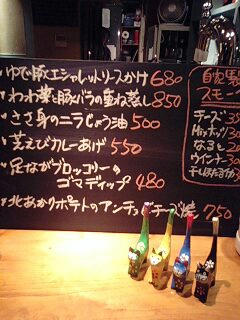 ゆで豚エシャレットソースかけ 680
わさ葉と豚バラの重ね蒸し 850
ささ身のニラじょう油 500
芝えびカレーあげ 550
足ながブロッコリーの
ゴマディップ 480
北あかりポテトのアンチョビチーズ焼 750
自家製
スモー
チーズ
ナッツ
なまこ 20
ウインナー 30